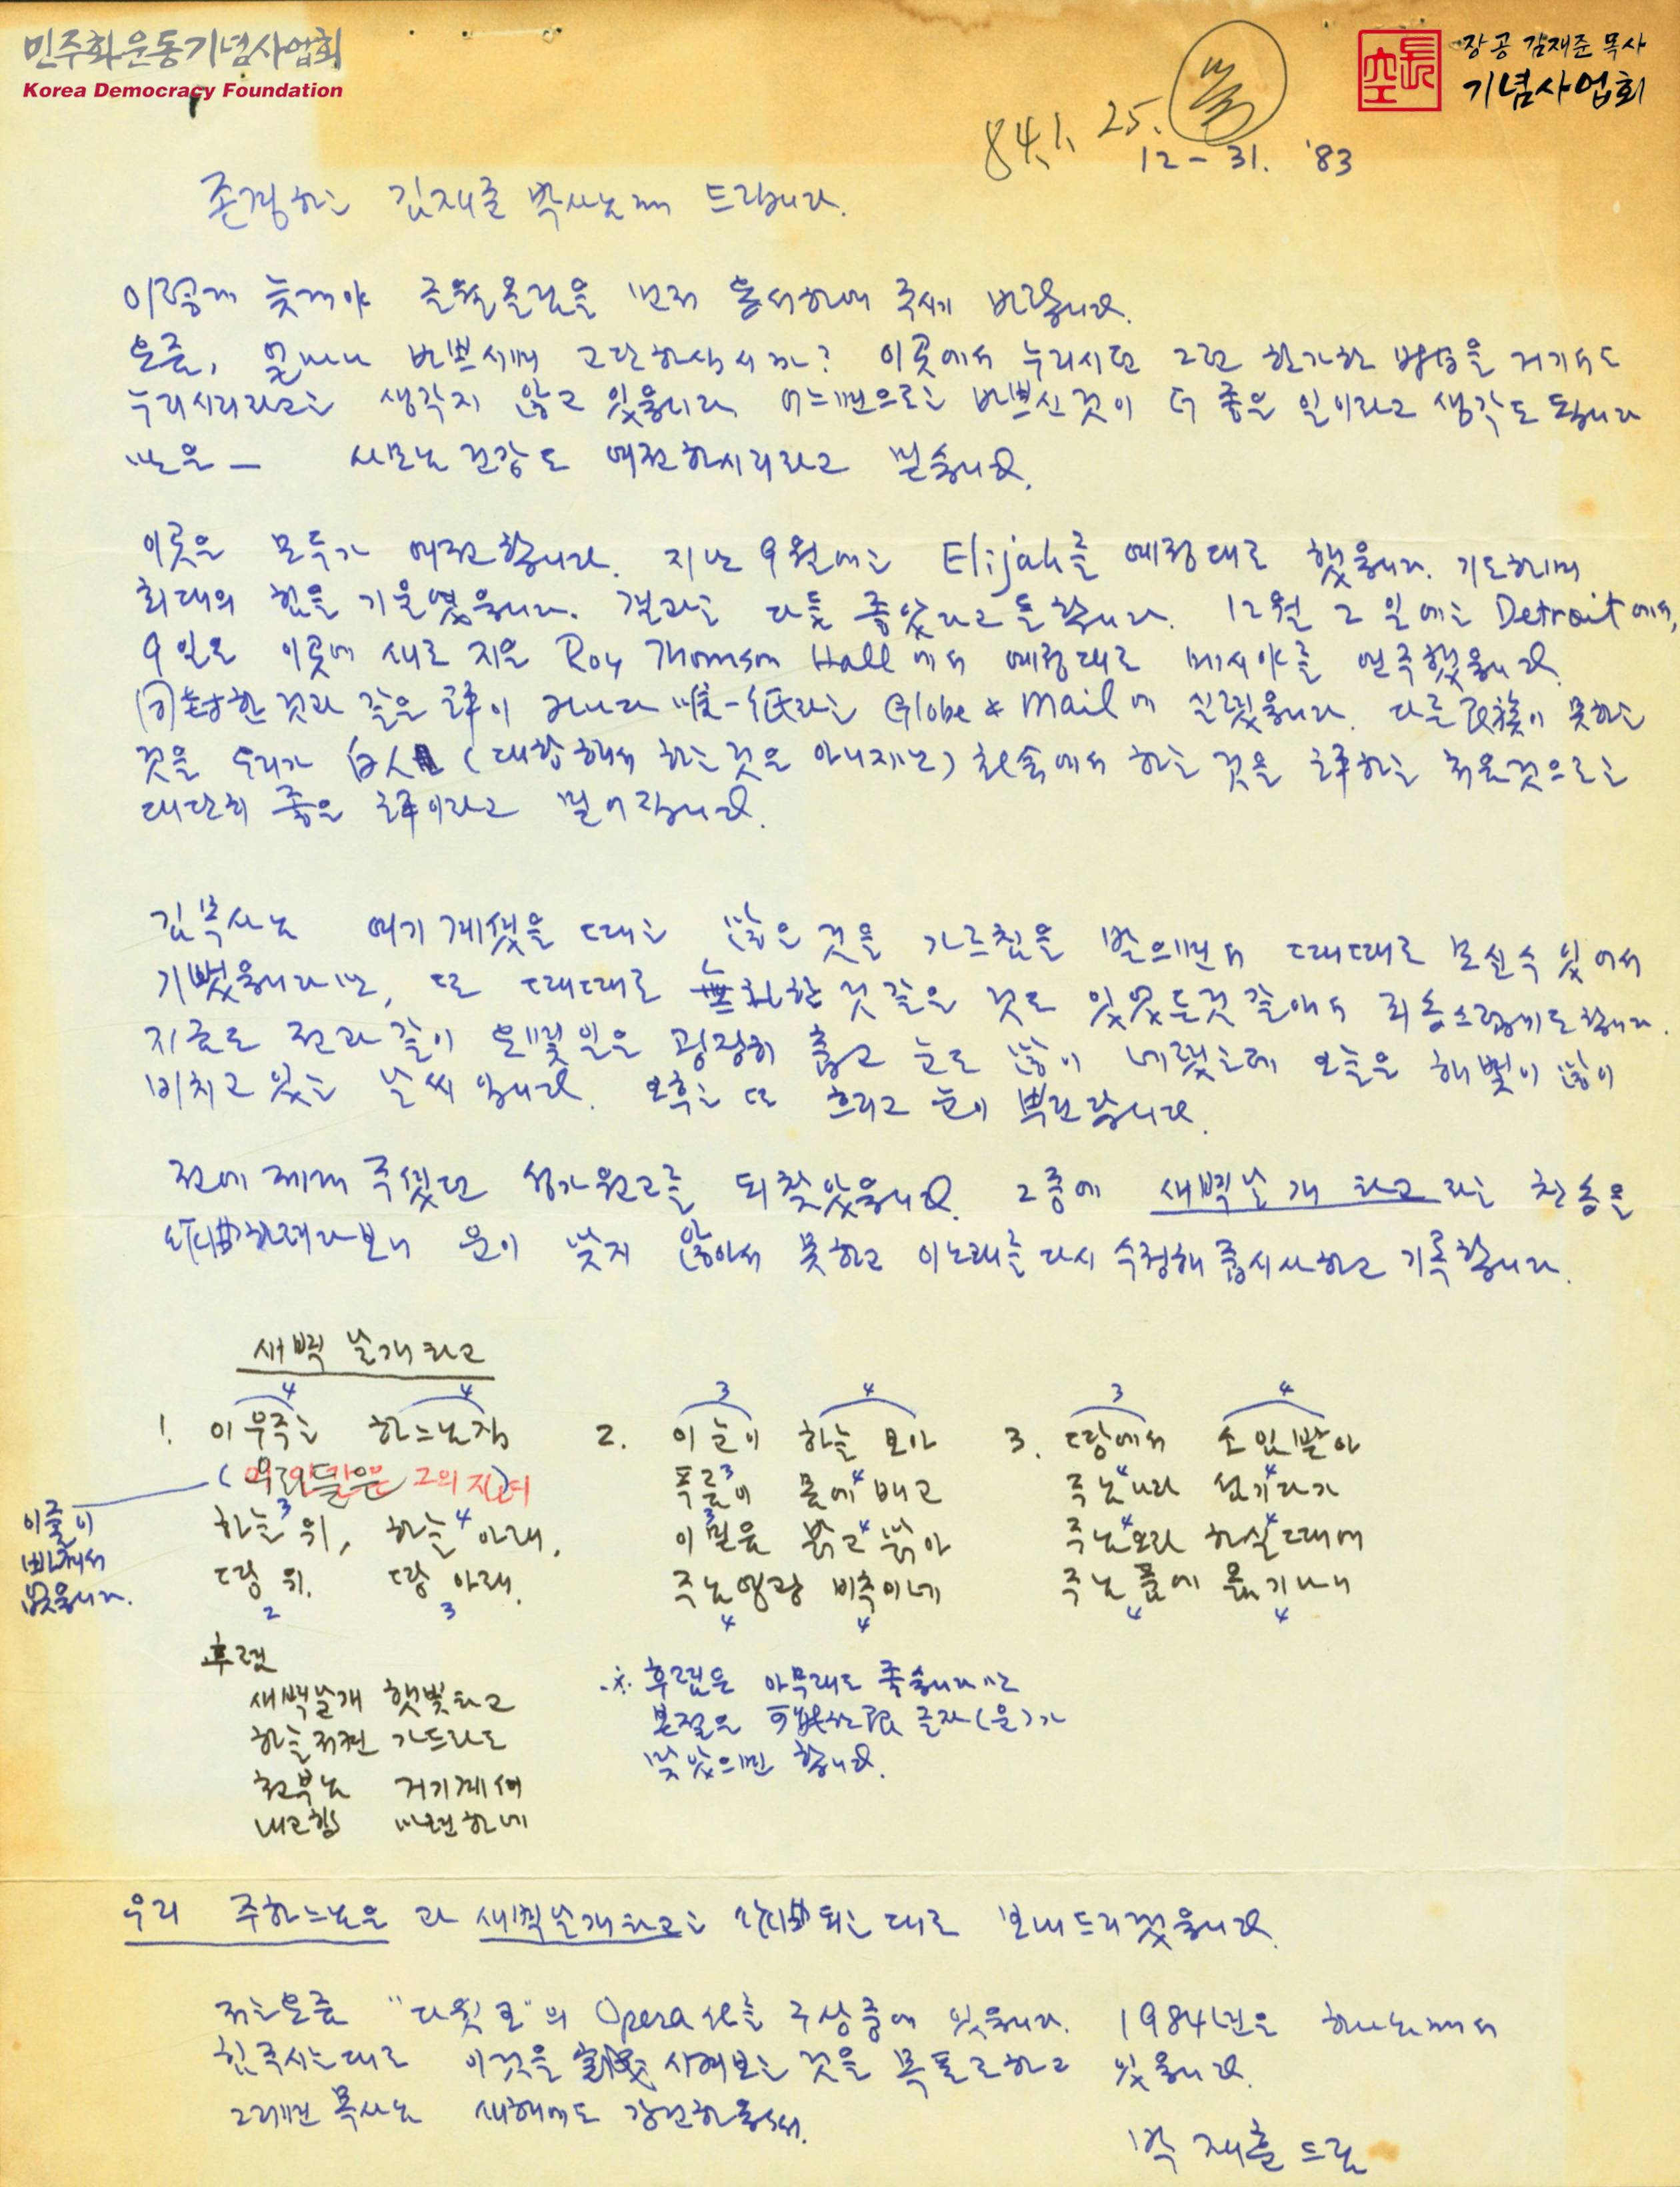 민주화운동기념사업회
Korea Democracy Foundation
장공 김재준 목사
기념사업회
84. 1. 25.
12 - 31. '83
존경하는 김재준 박사님께 드립니다.
이렇게 늦게야 글월올림을 먼저 용서하여 주시기 바랍니다.
요즘, 얼마나 바쁘시며 고단하십니까? 이곳에서 누리시던 그런 한가한 생활을 거기서도
누리시리라고는 생각지 않고 있읍니다. 어느면으로는 바쁘신것이 더 좋은 일이라고 생각도 됩니다
만은 — 사모님 건강도 여전하시리라고 믿습니다.
이곳은 모두가 여전합니다. 지난 9월에는 Elijah를 예정대로 했읍니다. 기도하며
최대의 힘을 기울였읍니다. 결과는 다들 좋았다고들 합니다. 12월 2일에는 Detroit에서,
9일은 이곳에 새로 지은 Roy Thomson Hall에서 예정대로 메시야를 연주했읍니다.
것과 같은 評이 Globe & Mail에 실렸읍니다. 다른 民族이 못하는
것을 우리가 白人 (대항해서 하는것은 아니지만) 하는 것을 評하는
대단히 좋은 評이라고 믿어집니다.
김목사님 여기 계셨을 때는 많은 것을 가르침을 받으면서 때때로 모실수 있어서
기뻤읍니다만, 또 때때로 것 같은 것도 있었든것 같애서 죄송스럽기도 합니다.
지금도 전과 같이 몇일은 굉장히 춥고 눈도 많이 내렸는데 오늘은 해볓이 많이
비치고 있는 날씨입니다. 오후는 또 흐리고 눈이 뿌린답니다.
전에 제게 주셨던 성가원고를 되찾았읍니다. 그중에 새벽날개 타고 라는 찬송은
作曲할래다보니 운이 맞지 않아서 못하고 이노래를 다시 수정해 줍시사하고 기록합니다.
새벽 날개타고
4 4
1. 이 우주는 하느님집
(우리들은 그의 자녀)
하늘 위, 하늘 아래,
3 4
땅 위. 땅 아래.
2 3
이줄이
빠져서
없읍니다.
후렴
새벽날개 햇빛타고
하늘저편 가드라도
천부님 거기계셔
내고향 마련하네
3 4
2. 이 눈이 하늘 보아
푸름이 몸에 배고
3 4
이 맘은 맑고 맑아
3 4
주님영광 비추이네
4 4
3 4
3. 땅에서 소임받아
주님나라 섬기다가
4 4
주님오라 하실때에
4 4
주님 품에 옮기나니
4 4
※ 후렴은 아무래도 좋습니다만
본절은 글자(운)가
맞았으면 합니다.
우리 주하느님은 과 새벽날개타고는 作曲되는대로 보내드리겠읍니다.
저는 요즘 "다윗 왕"의 Opera化를 구상중에 있읍니다. 1984년은 하나님께서
힘주시는대로 이것을 시켜보는 것을 목표로하고 있읍니다.
그러면 목사님 새해에도 강건하옵소서.
박 재훈 드림